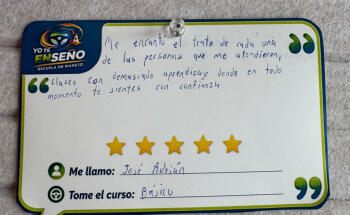 YO TE
ENSEÑO
ESCUELA DE MANEJO
Me encantó el trato de cada una
de las personas que me atendieron,
clases con demasiado aprendizaje donde en todo
momento te sientes con confianza
Me llamo: José Adrián
Tome el curso: Básico